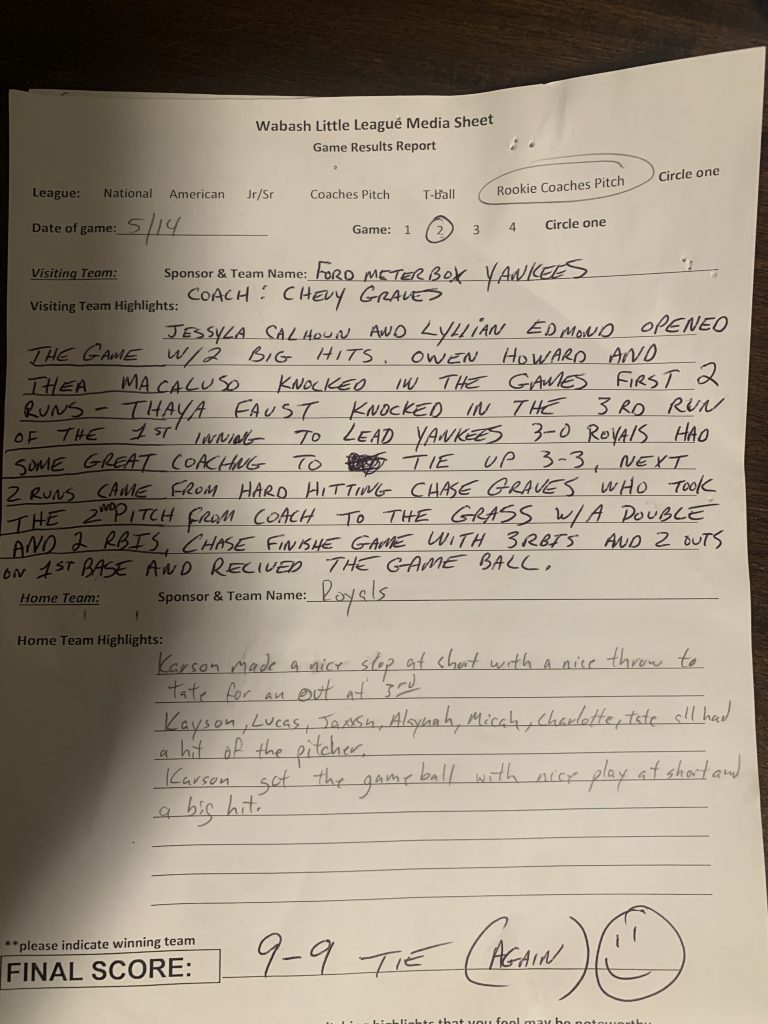 Wabash Little League Media Sheet
Game Results Report
League: National American Jr/Sr Coaches Pitch T-Ball Rookie Coaches Pitch Circle one
Date of game: 5/14 Game: 1 2 3 4 Circle one
Visiting Team: Sponsor & Team Name: FORD METER BOX YANKEES
COACH: CHEVY GRAVES
Visiting Team Highlights:
JESSYLA CALHOUN AND LYLLIAN EDMOND OPENED
THE GAME W/2 BIG HITS. OWEN HOWARD AND
THEA MACALUSO KNOCKED IN THE GAMES FIRST 2
RUNS - THAYA FAUST KNOCKED IN THE 3RD RUN
OF THE 1ST INNING TO LEAD YANKEES 3-0 ROYALS HAD
SOME GREAT COACHNG TO TIE UP 3-3, NEXT
2 RUNS CAME FROM HARD HITTING CHASE GRAVES WHO TOOK
THE 2ND PITCH FROM COACH TO THE GRASS W/A DOUBLE
AND 2 RBIS, CHASE FINISHE GAME WITH 3RBIS AND 2 OUTS
ON 1ST BASE AND RECIVED THE GAME BALL.
Home Team: Sponsor & Team Name: Royals
Home Team Highlights:
Karson made a nice stop at short with a nice throw to
tate for an out at 3rd
Kayson, Lucas, Jaxxsn, Alaynah, Micah, Charlotte, tate all had
a hit of the pitcher.
Karson got the game ball with nice play at short and
a big hit.
**please indicate winning team
FINAL SCORE: 9-9 TIE (AGAIN)
highlights that you feel may be noteworthy